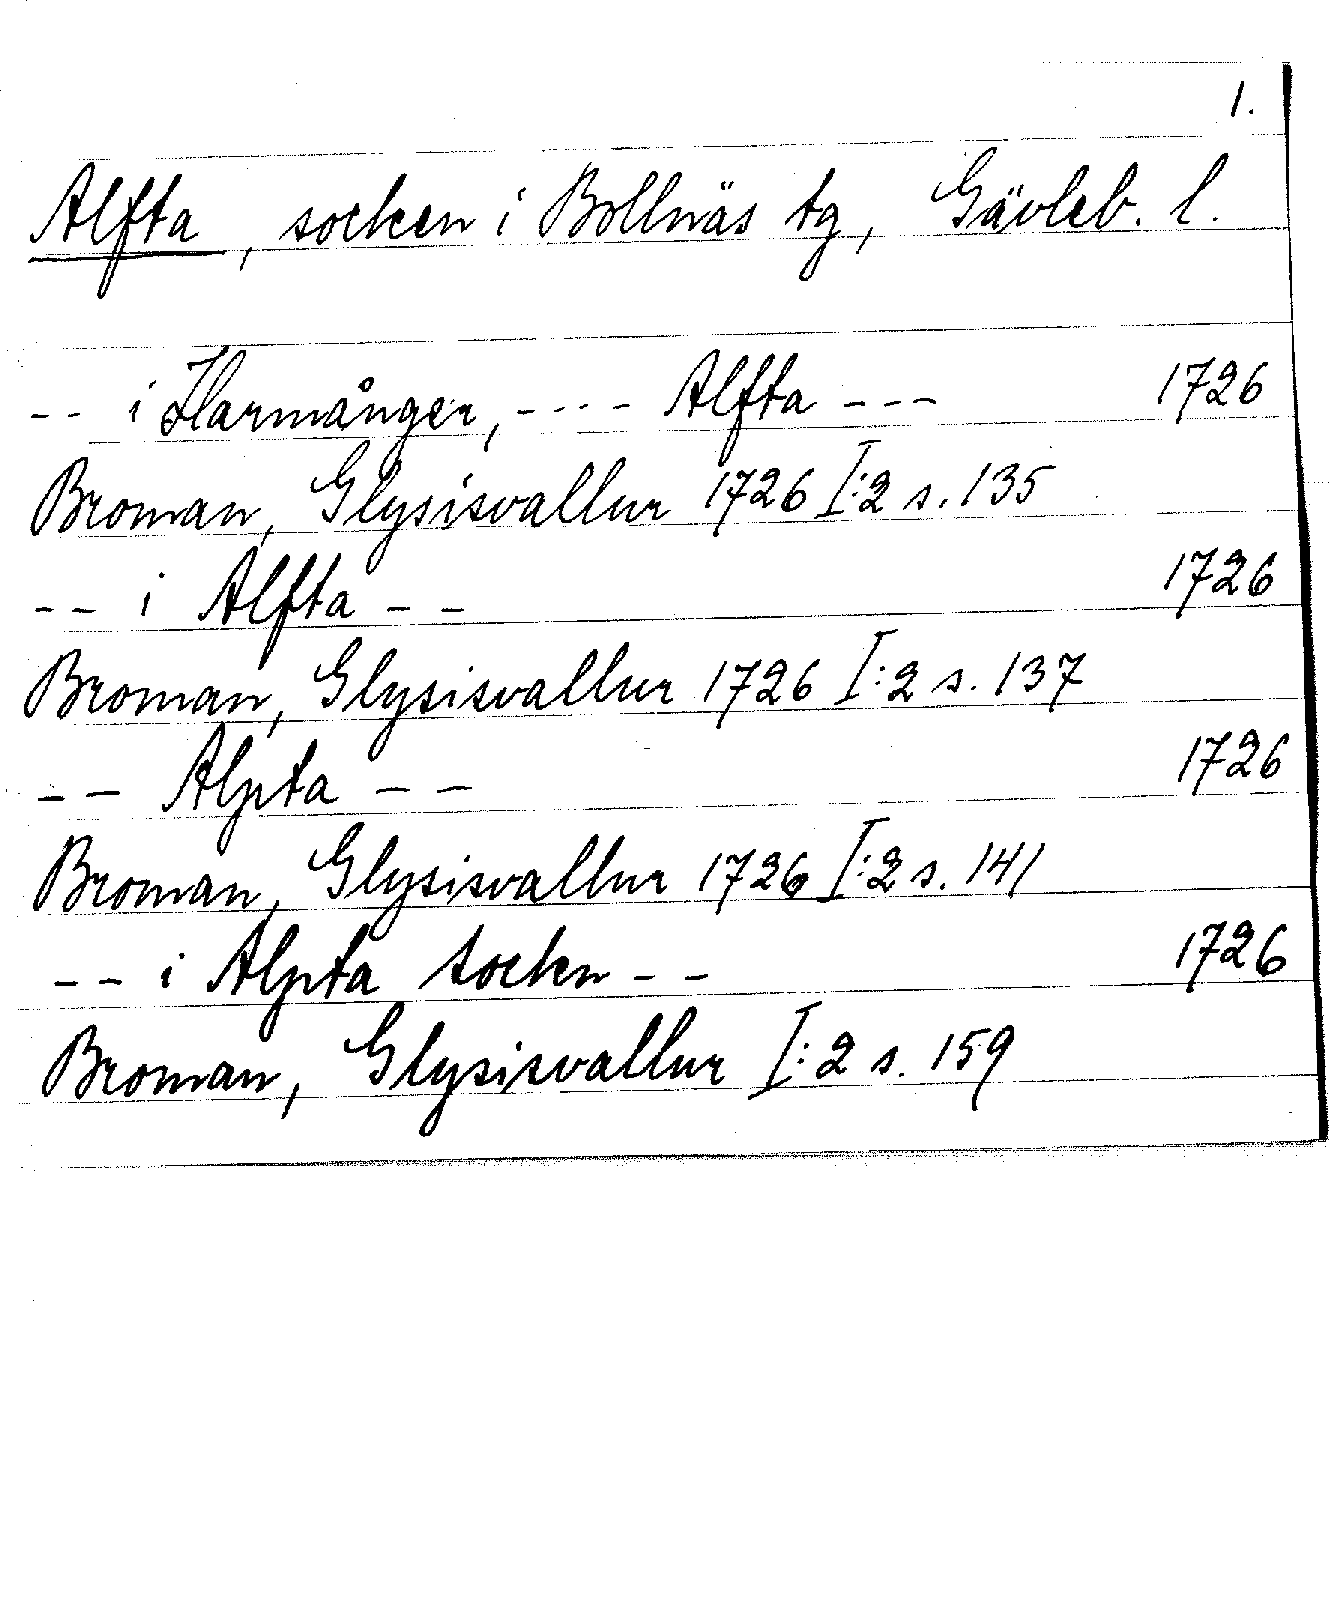 1.
Alfta, socken i Bollnäs tg, Gävleb. l.
-- i Harmånger, ---- Alfta --- 1726
Broman, Glysisvallur 1726 I:2 s. 135
-- i Alfta -- 1726
Broman, Glysisvallur 1726 I:2 s. 137
-- Alpta -- 1726
Broman, Glysisvallur 1726 I:2 s. 141
-- i Alpta socken -- 1726
Broman, Glysisvallur I:2 s. 159